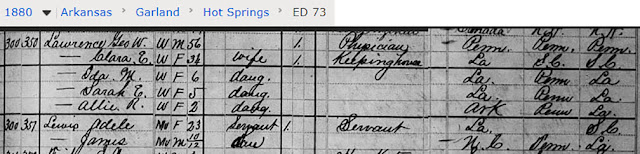 1880 ▼ Arkansas > Garland > Hot Springs > ED 73
Canada
300 350 Lawrence Geo W. W M 56 1. Physician Penn. Penn. Penn.
— Clara E. W F 34 wife 1. Keepinghouse La S.C. S.C.
— Ida M. W F 6 daug. La. Penn La.
— Sarah E. W F 5 daug. La. Penn La.
— Allie R. W F 2 daug. Ark Penn La.
300 351 Lewis Adele Mu F 23 Servant 1. Servant La. S.C.
James Mu M 10/12 N.C. Penn. La.